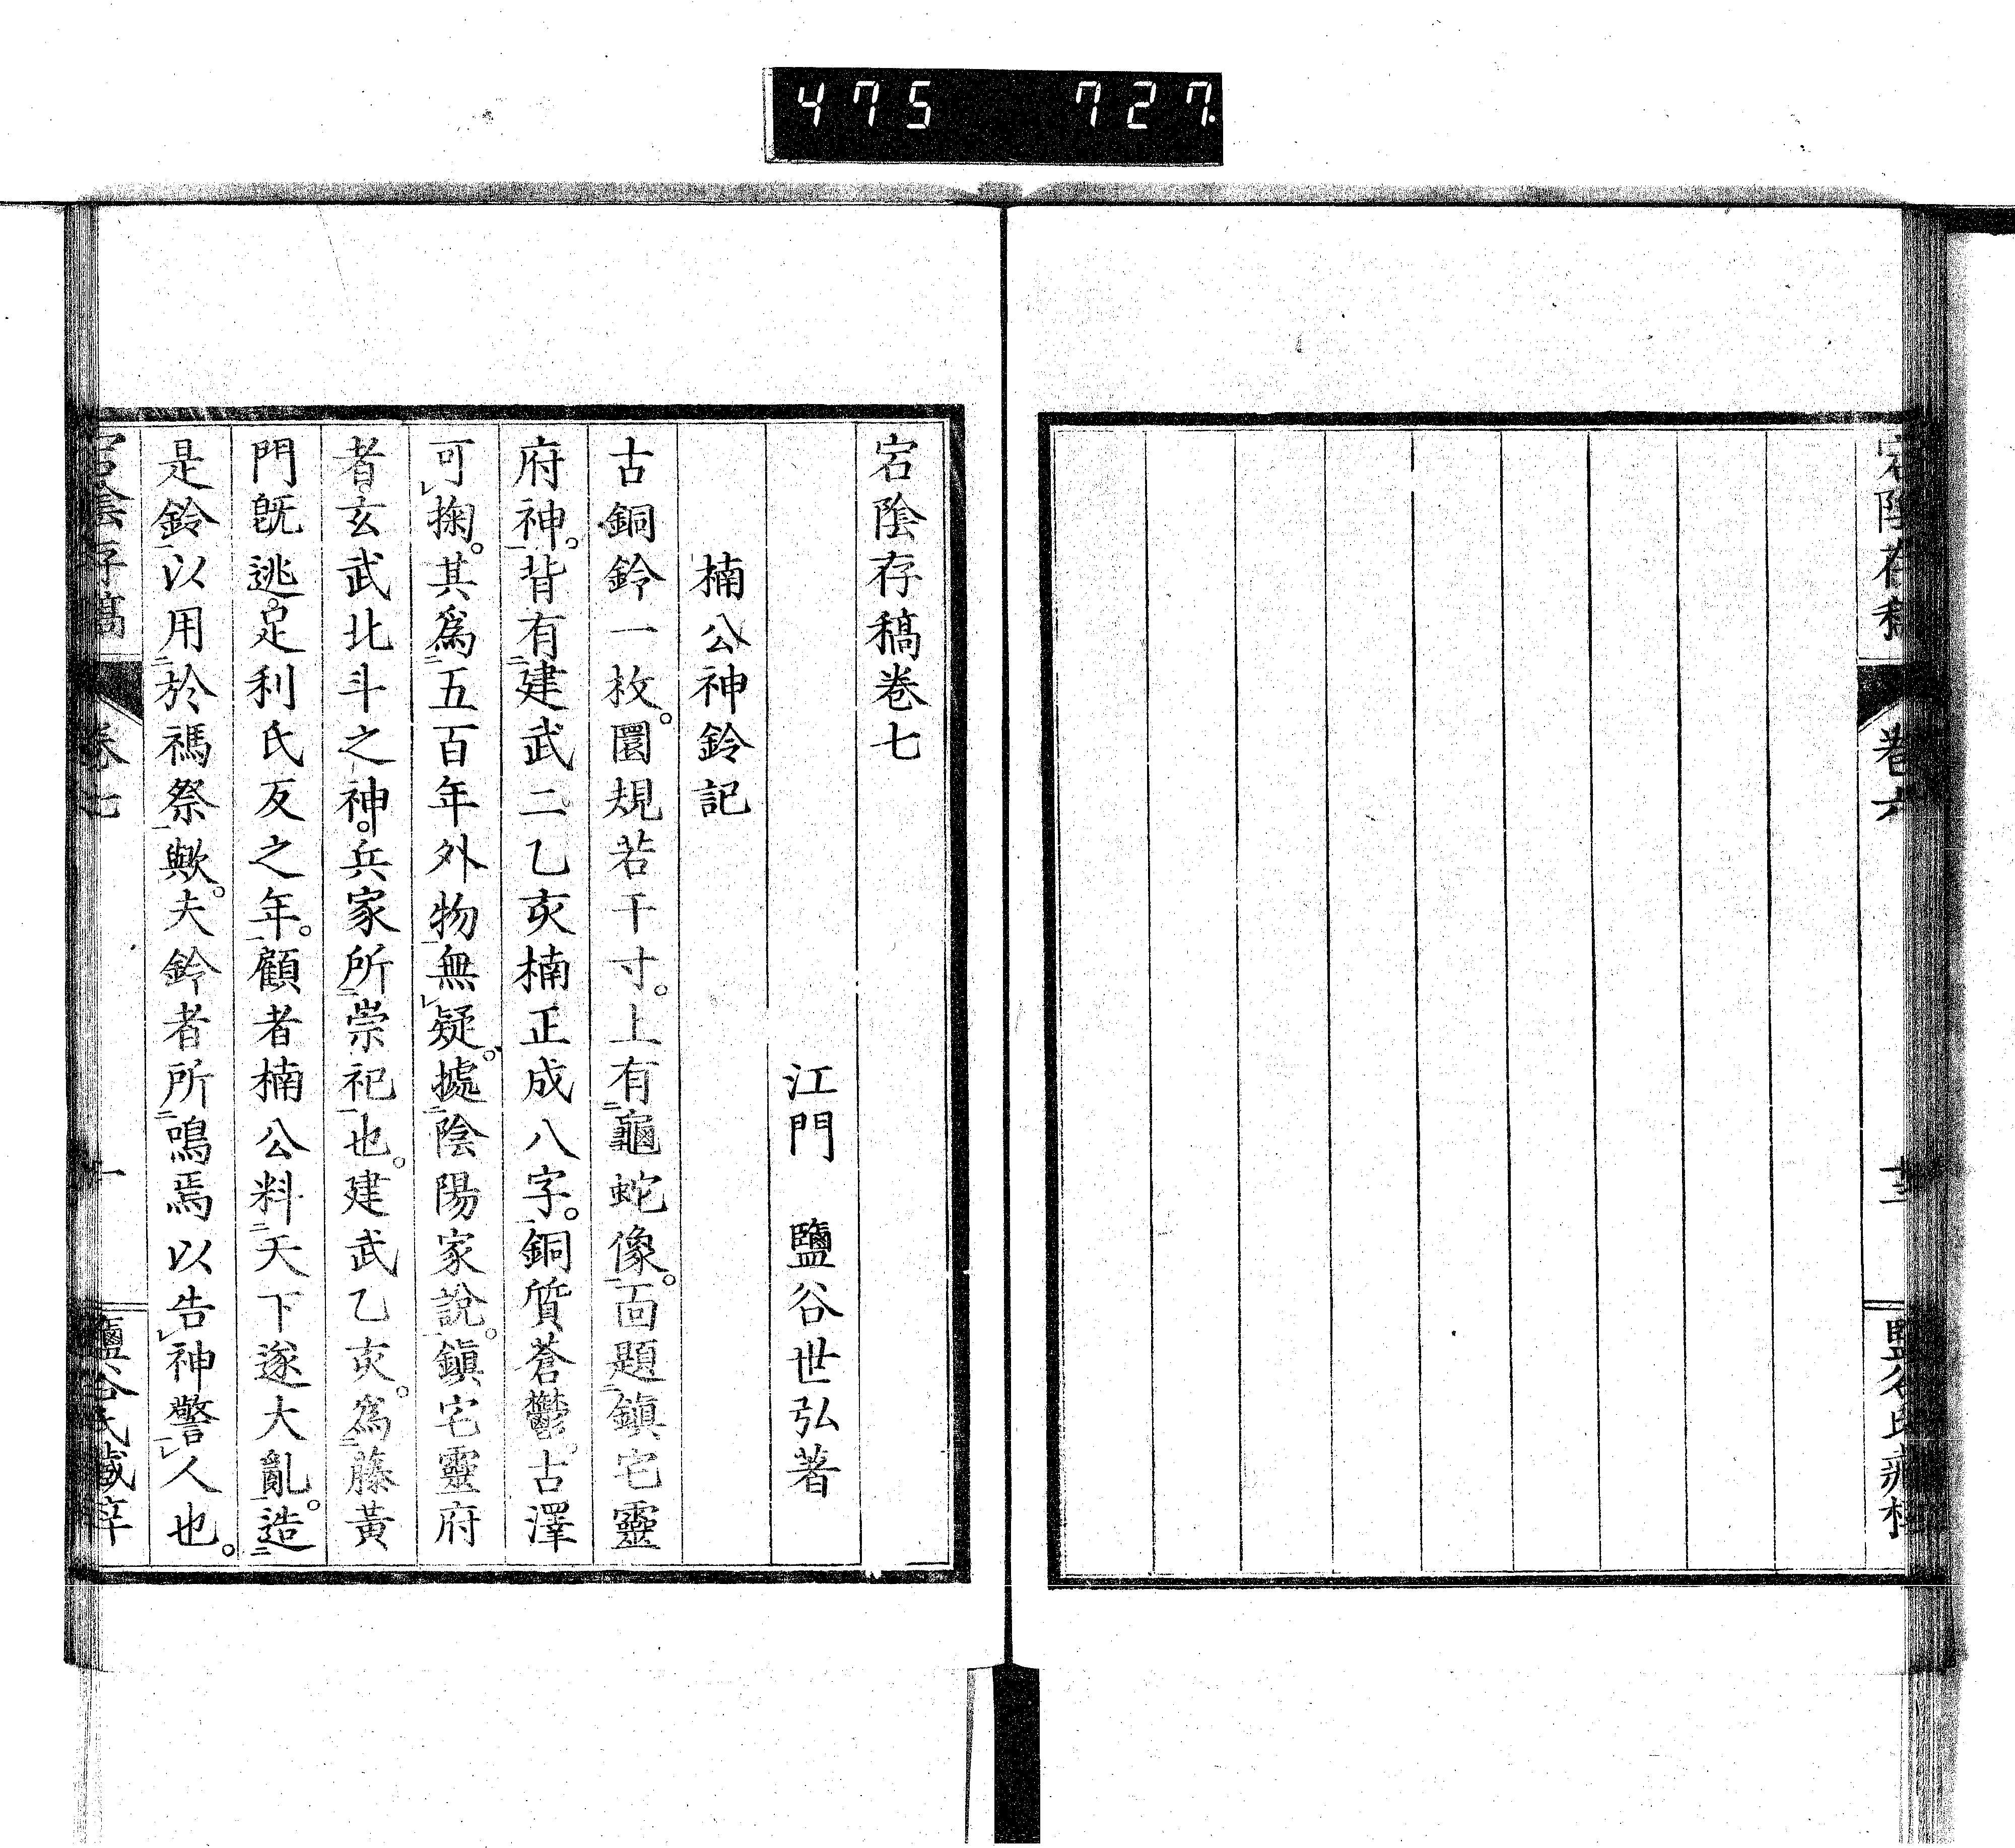 475 727
宕陰存稿
卷六
十三
鹽谷氏藏梓
宕陰存稿卷七
江門 鹽谷世弘著
楠公神鈴記
古銅鈴一枚。圜規若干寸。上有二龜蛇像一。面題二鎮宅靈
府神一。背有二建武二乙亥楠正成八字一。銅質蒼鬱。古澤
可レ掬。其爲二五百年外物一無レ疑。據二陰陽家說一。鎮宅靈府
者。玄武北斗之神。兵家所二崇祀一也。建武乙亥。爲二藤黃
門既逃。足利氏反之年一。顧者楠公料二天下遂大亂一。造二
是鈴一以用二於禡祭一歟。夫鈴者所二鳴焉以告レ神警一レ人也。
宕陰存稿
卷七
一
鹽谷氏藏梓